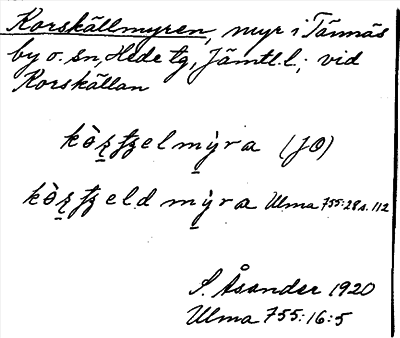 Korskällmyren, myr i Tännäs
by o. sn, Hede tg, Jämtl. l.; vid
Korskällan
myra (JO)
myra Ulma 755:28 s. 112
S. Åsander 1920
Ulma 755:16:5